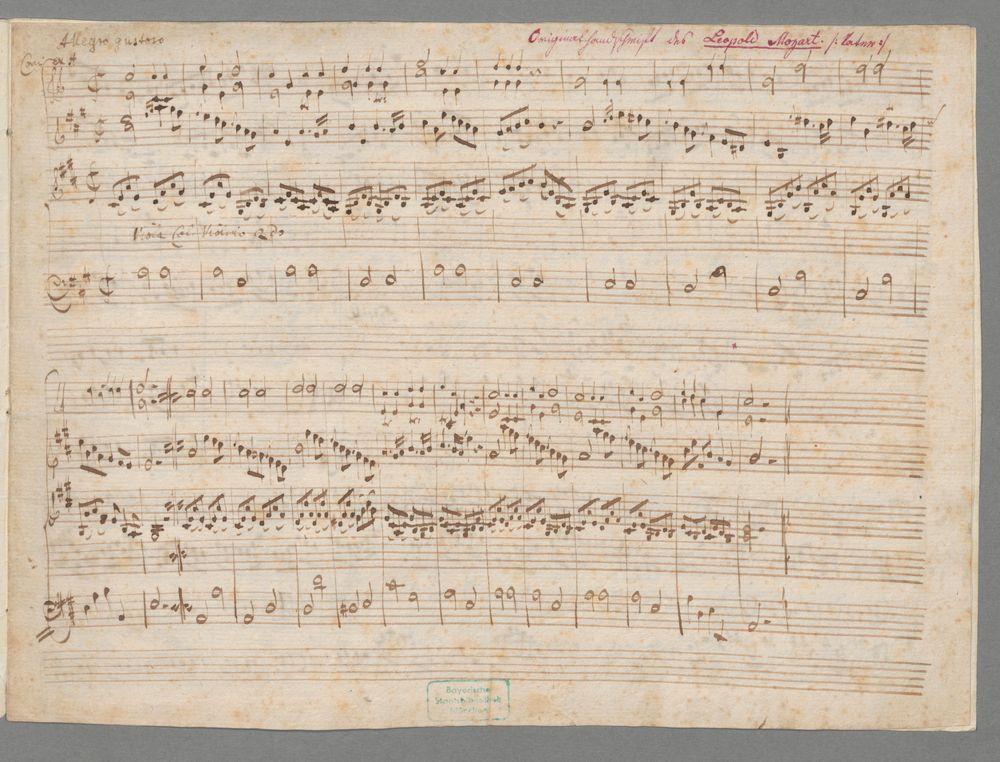 Allegro gustoso
Originalhandschrift des Leopold Mozart. /: Vater :/
Corni ex A
Viola Col Violino 2do
Bayerische
Staatsbibliothek
München